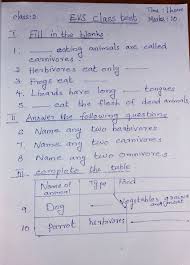 Class:2 EVS Class test Time: 1 hour
Marks: 10
I Fill in the blanks
1. ______ eating animals are called
carnivores.
2 Herbivores eat only ______
3. Frogs eat ______
4. Lizards have long ______ tongues
5. ______ eat the flesh of dead animals
II Answer the following questions
6 Name any two herbivores
7. Name any two carnivores
8 Name any two omnivores
III complete the table
Name of animal Type Food
9 Dog ______ Vegetables grains and meat
10 Parrot herbivores ______